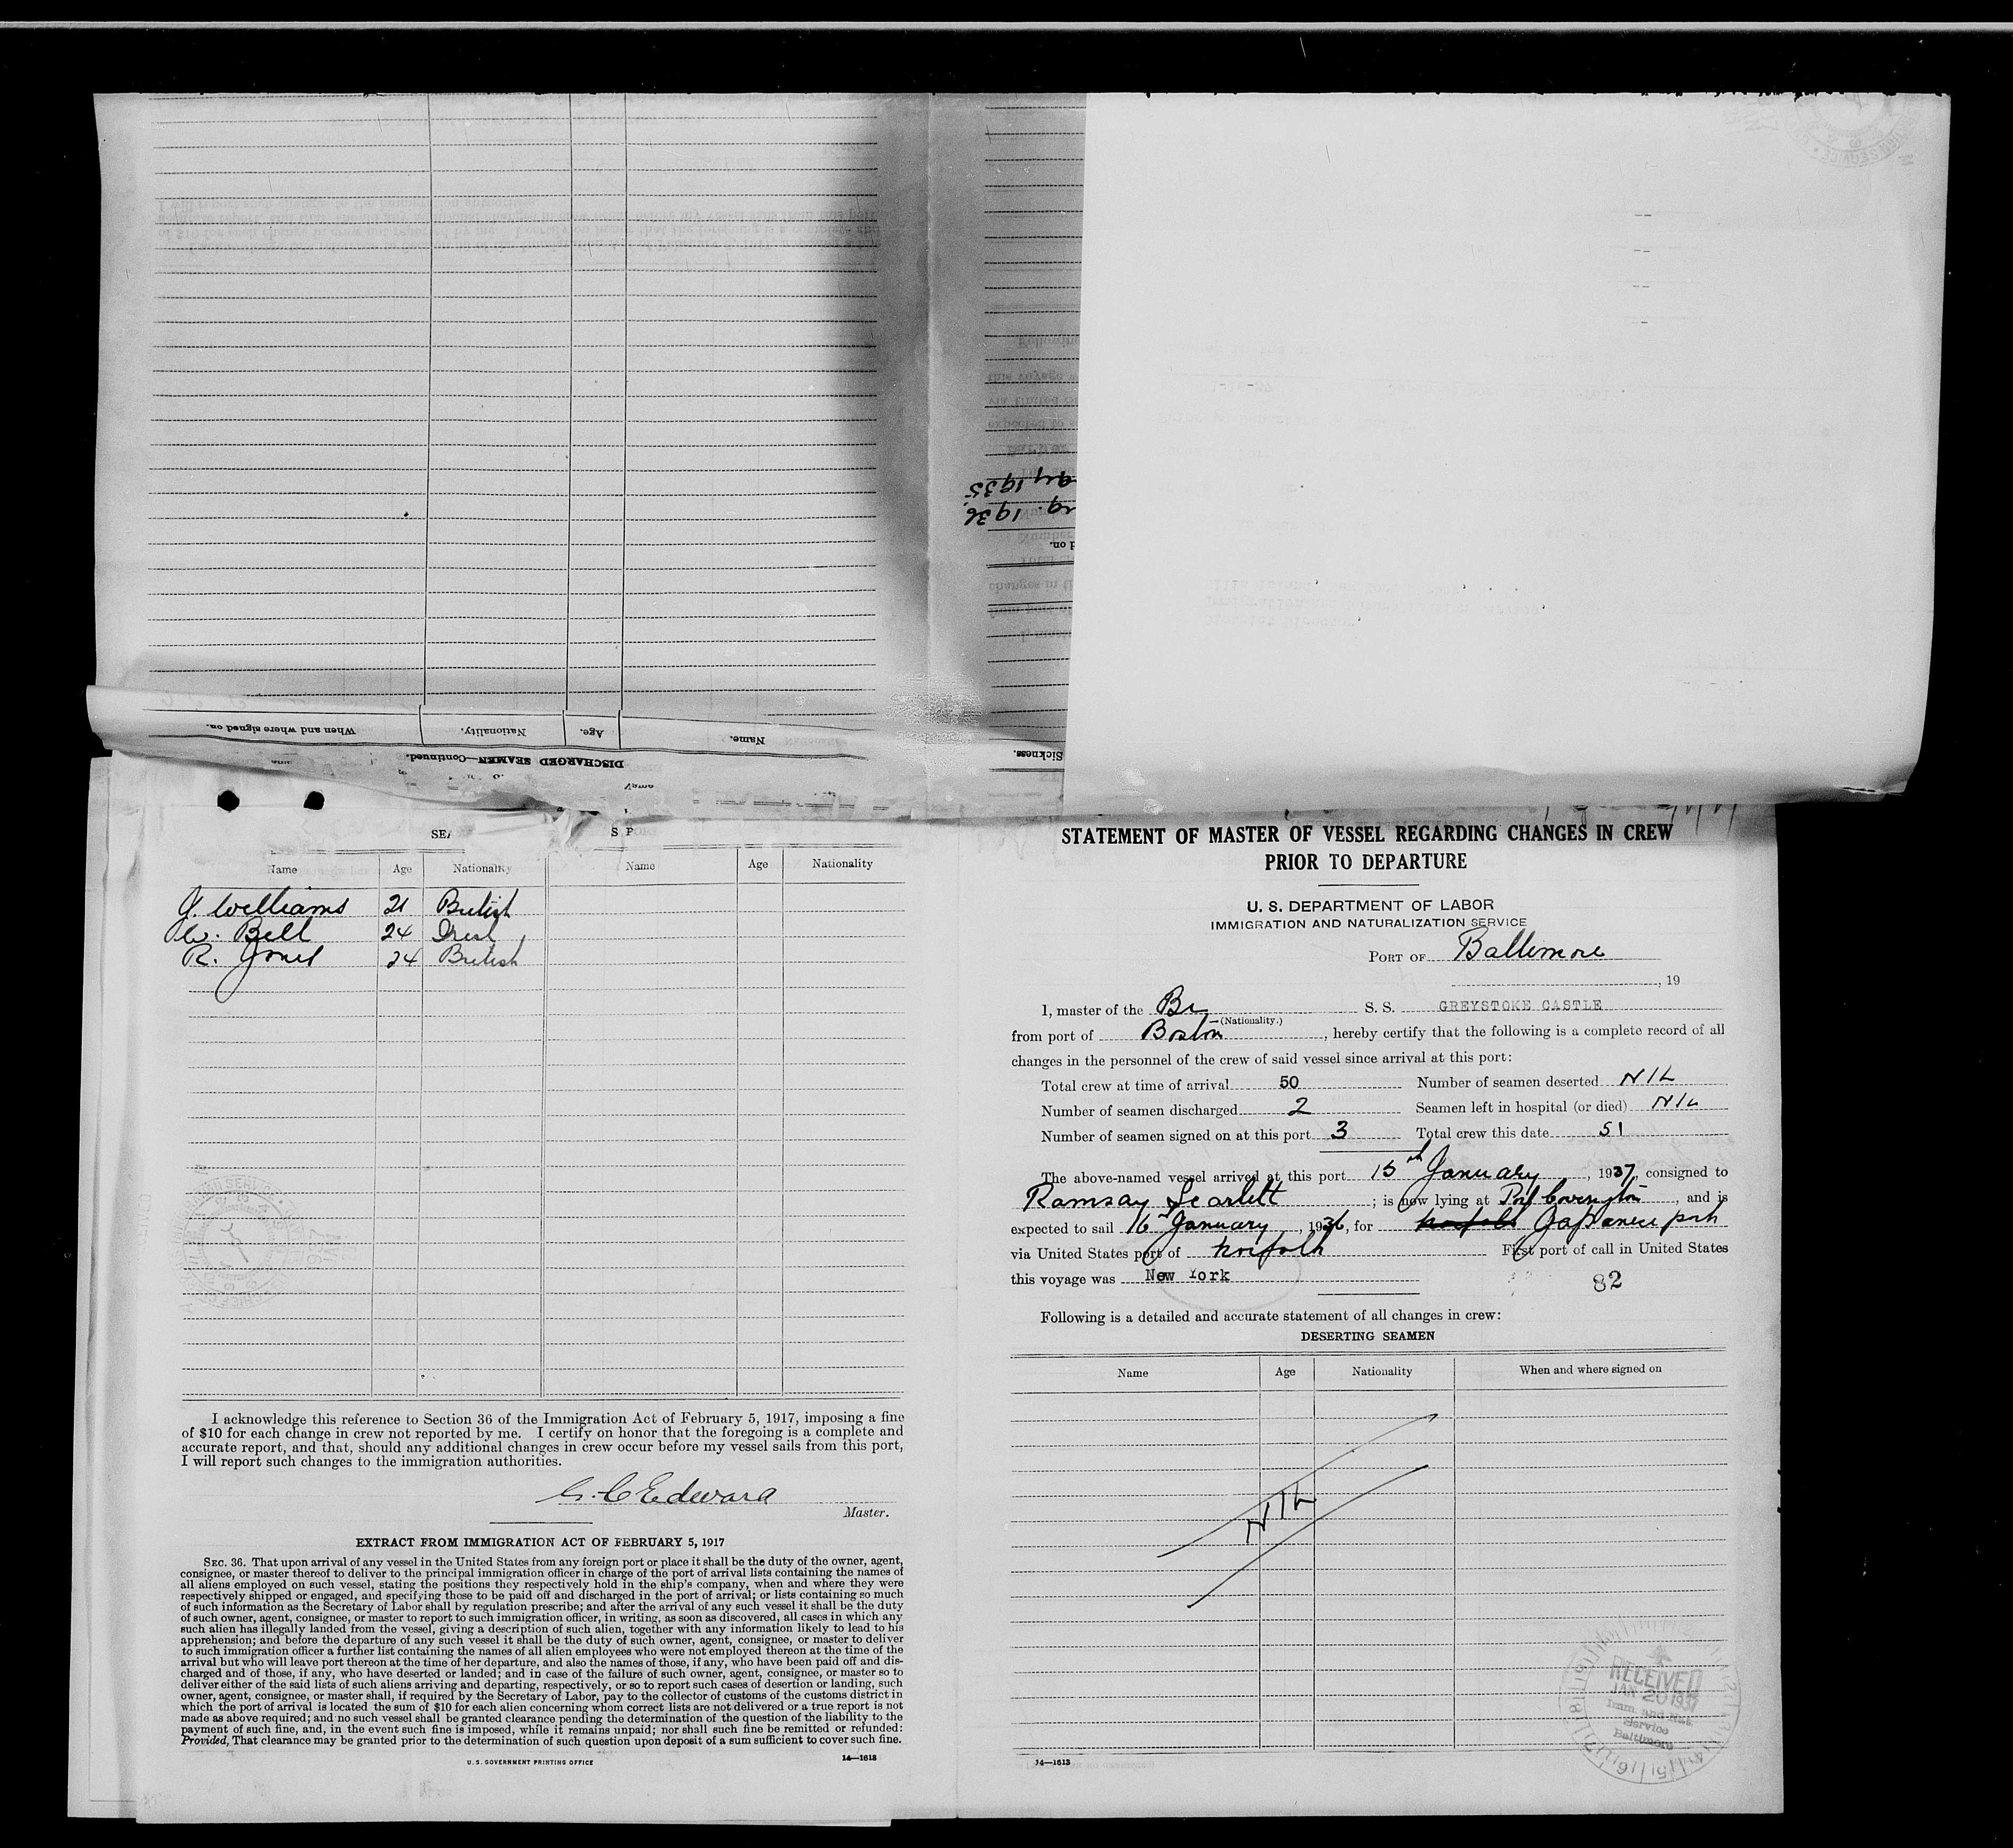 When and where signed on.
Nationality.
Age.
Name.
DISCHARGED SEAMEN—Continued.
Sickness.
1935
1936
Name Age Nationality Name Age Nationality
J. Williams 21 British
W. Bell 24 Irish
R. Jones 24 British
I acknowledge this reference to Section 36 of the Immigration Act of February 5, 1917, imposing a fine
of $10 for each change in crew not reported by me. I certify on honor that the foregoing is a complete and
accurate report, and that, should any additional changes in crew occur before my vessel sails from this port,
I will report such changes to the immigration authorities.
G. C Edward
Master.
EXTRACT FROM IMMIGRATION ACT OF FEBRUARY 5, 1917
SEC. 36. That upon arrival of any vessel in the United States from any foreign port or place it shall be the duty of the owner, agent,
consignee, or master thereof to deliver to the principal immigration officer in charge of the port of arrival lists containing the names of
all aliens employed on such vessel, stating the positions they respectively hold in the ship's company, when and where they were
respectively shipped or engaged, and specifying those to be paid off and discharged in the port of arrival; or lists containing so much
of such information as the Secretary of Labor shall by regulation prescribe; and after the arrival of any such vessel it shall be the duty
of such owner, agent, consignee, or master to report to such immigration officer, in writing, as soon as discovered, all cases in which any
such alien has illegally landed from the vessel, giving a description of such alien, together with any information likely to lead to his
apprehension; and before the departure of any such vessel it shall be the duty of such owner, agent, consignee, or master to deliver
to such immigration officer a further list containing the names of all alien employees who were not employed thereon at the time of the
arrival but who will leave port thereon at the time of her departure, and also the names of those, if any, who have been paid off and dis-
charged and of those, if any, who have deserted or landed; and in case of the failure of such owner, agent, consignee, or master so to
deliver either of the said lists of such aliens arriving and departing, respectively, or so to report such cases of desertion or landing, such
owner, agent, consignee, or master shall, if required by the Secretary of Labor, pay to the collector of customs of the customs district in
which the port of arrival is located the sum of $10 for each alien concerning whom correct lists are not delivered or a true report is not
made as above required; and no such vessel shall be granted clearance pending the determination of the question of the liability to the
payment of such fine, and, in the event such fine is imposed, while it remains unpaid; nor shall such fine be remitted or refunded:
Provided, That clearance may be granted prior to the determination of such question upon deposit of a sum sufficient to cover such fine.
U. S. GOVERNMENT PRINTING OFFICE 14—1613
STATEMENT OF MASTER OF VESSEL REGARDING CHANGES IN CREW
PRIOR TO DEPARTURE
U. S. DEPARTMENT OF LABOR
IMMIGRATION AND NATURALIZATION SERVICE
PORT OF Baltimore
, 19
I, master of the Br S. S. GREYSTOKE CASTLE
(Nationality.)
from port of Boston , hereby certify that the following is a complete record of all
changes in the personnel of the crew of said vessel since arrival at this port:
Total crew at time of arrival 50 Number of seamen deserted NIL
Number of seamen discharged 2 Seamen left in hospital (or died) NIL
Number of seamen signed on at this port 3 Total crew this date 51
The above-named vessel arrived at this port 15th January , 1937, consigned to
Ramsay Scarlett ; is now lying at Port Covington , and is
expected to sail 16th January , 1936, for Norfolk Japanese ports
via United States port of Norfolk First port of call in United States
this voyage was New York
82
Following is a detailed and accurate statement of all changes in crew:
DESERTING SEAMEN
Name Age Nationality When and where signed on
NIL
RECEIVED
JAN 20 1937
Imm. and Nat.
Service
Baltimore
14—1613